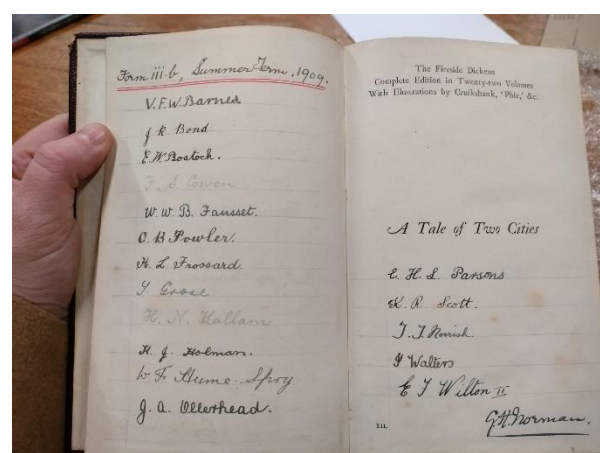 Form iii-b, Summer Term, 1909.
V. F. W. Barnes.
J R Bond
E. W. Bostock.
F. S. Cowen
W. W. B. Fausset.
O. B Fowler.
H. L. Frossard.
S. Grose
H. N. Hallam
H. J. Holman.
W F Hume-Spry
J. A. Ollerhead.
The Fireside Dickens
Complete Edition in Twenty-two Volumes
With Illustrations by Cruikshank, 'Phiz,' &c.
A Tale of Two Cities
C. H. S. Parsons
K. R. Scott.
J. J. Norrish.
Walters
E J Wilton II
XII.
G. H. Norman.